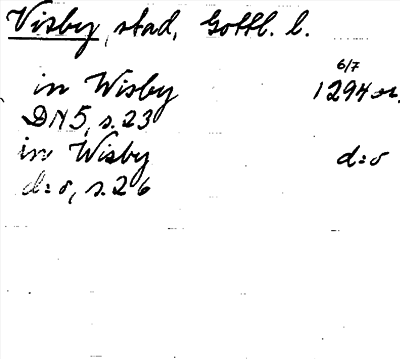 Visby, stad, Gottl. l.
in Wisby 6/7 1294 or.
DN 5, s. 23
in Wisby d:o
d:o, s. 26